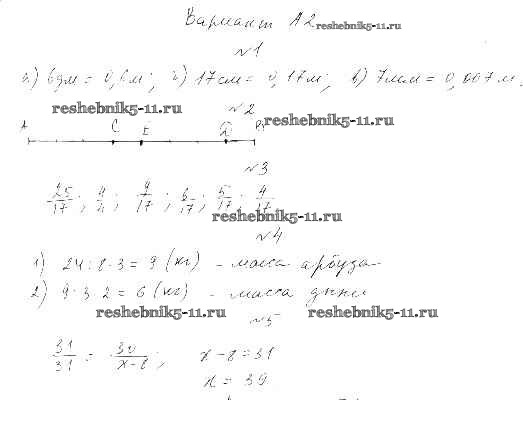 Вариант А2 reshebnik5-11.ru
№1
а) 6дм = 0,6м; б) 17см = 0,17м; в) 7мм = 0,007м.
reshebnik5-11.ru №2 reshebnik5-11.ru
A C E D B
№3
25/17; 4/4; 7/17; 6/17; 5/17; 4/17
reshebnik5-11.ru
№4
1) 24:8·3=9 (кг) - масса арбуза
2) 9:3·2=6 (кг) - масса дыни
reshebnik5-11.ru reshebnik5-11.ru
№5
31/31 = 30/x-8; x-8=31
x = 39